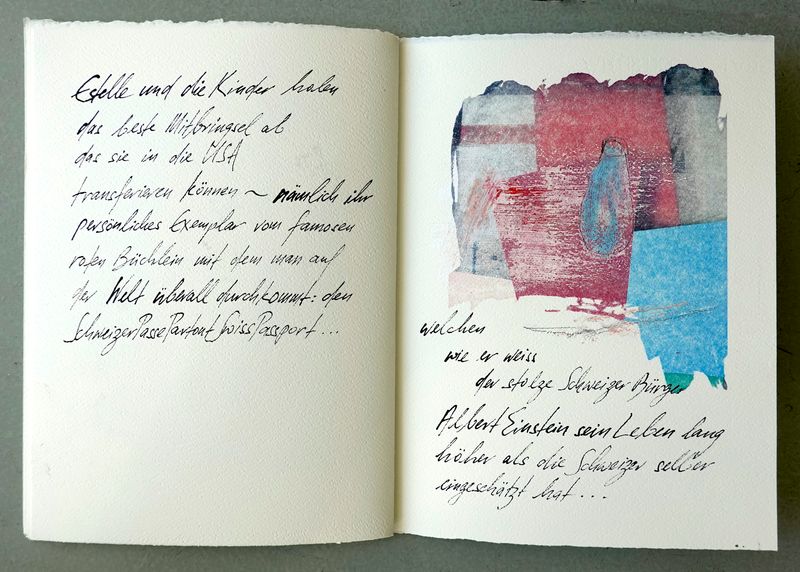 Estelle und die Kinder holen
das beste Mitbringsel ab
das sie in die USA
transferieren können ~ nämlich ihr
persönliches Exemplar vom famosen
roten Büchlein mit dem man auf
der Welt überall durchkommt: den
SchweizerPassePartoutSwissPassport...
welchen
wie er weiss
der stolze Schweizer Bürger
Albert Einstein sein Leben lang
höher als die Schweizer selber
eingeschätzt hat...